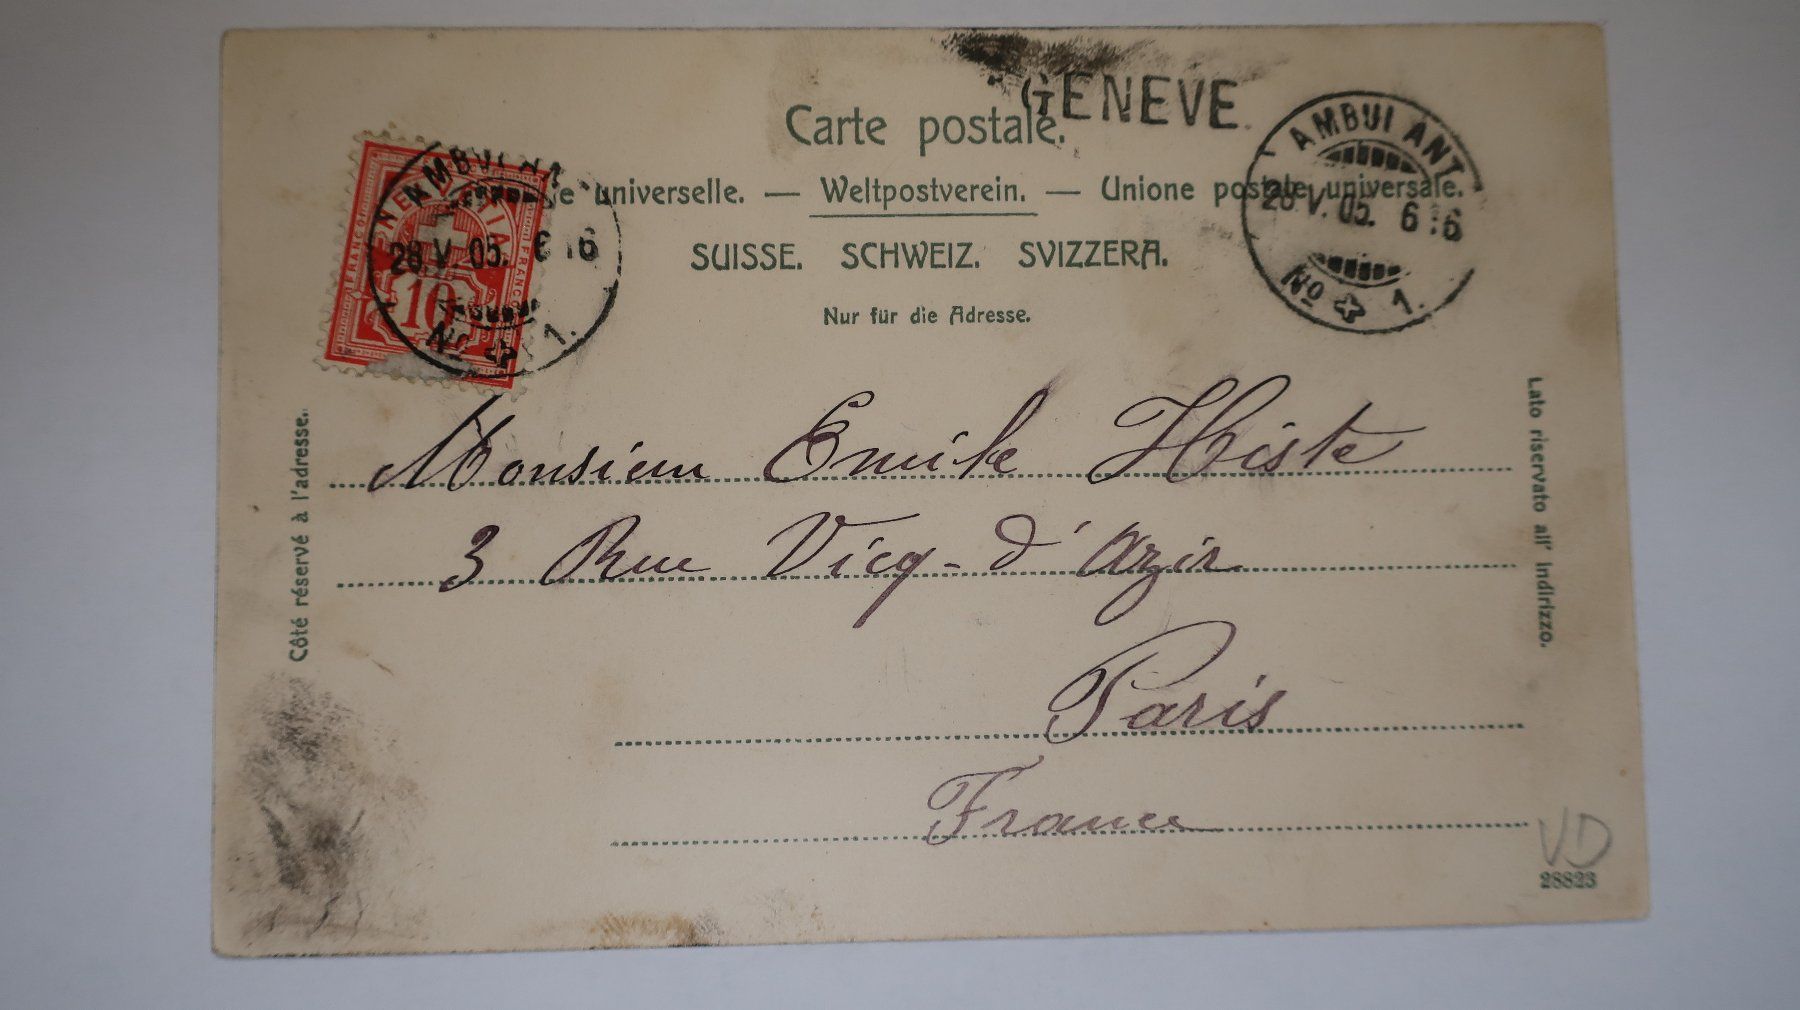 GENEVE.
Carte postale.
AMBULANT
28.V.05. 6 16
No 1.
universelle. — Weltpostverein. — Unione postale universale.
SUISSE. SCHWEIZ. SVIZZERA.
Nur für die Adresse.
FRANCO
HELVETIA
FRANCO
10
AMBULANT
28.V.05. 6 16
No 1.
Côté réservé à l'adresse.
Lato riservato all' indirizzo.
Monsieur Emile Histe
3 Rue Vicq-d'Azir
Paris
France
VD
28823